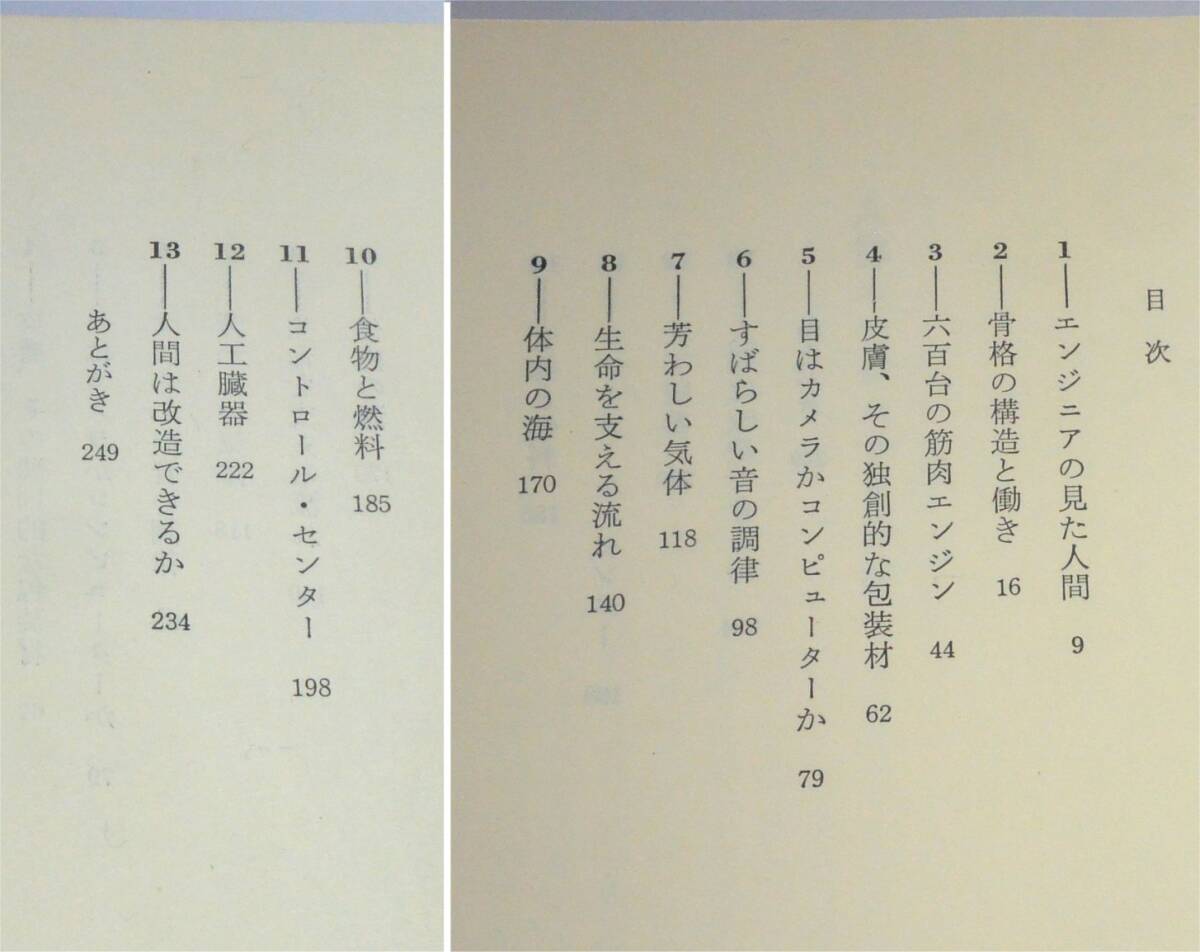 目次
1──エンジニアの見た人間 9
2──骨格の構造と働き 16
3──六百台の筋肉エンジン 44
4──皮膚、その独創的な包装材 62
5──目はカメラかコンピューターか 79
6──すばらしい音の調律 98
7──芳わしい気体 118
8──生命を支える流れ 140
9──体内の海 170
10──食物と燃料 185
11──コントロール・センター 198
12──人工臓器 222
13──人間は改造できるか 234
あとがき 249